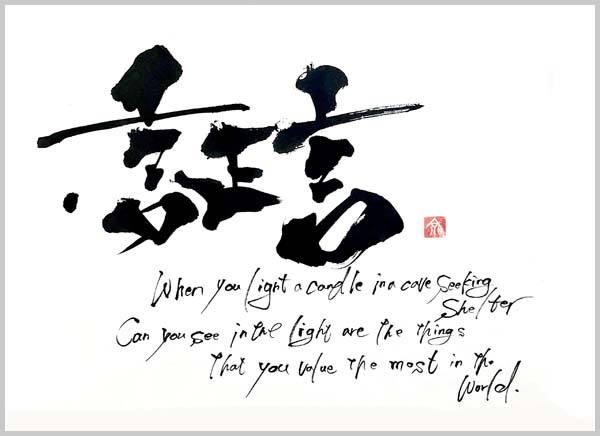 証言
When you light a candle in a cave seeking
Shelter
Can you see in the light are the things
that you value the most in the
World.